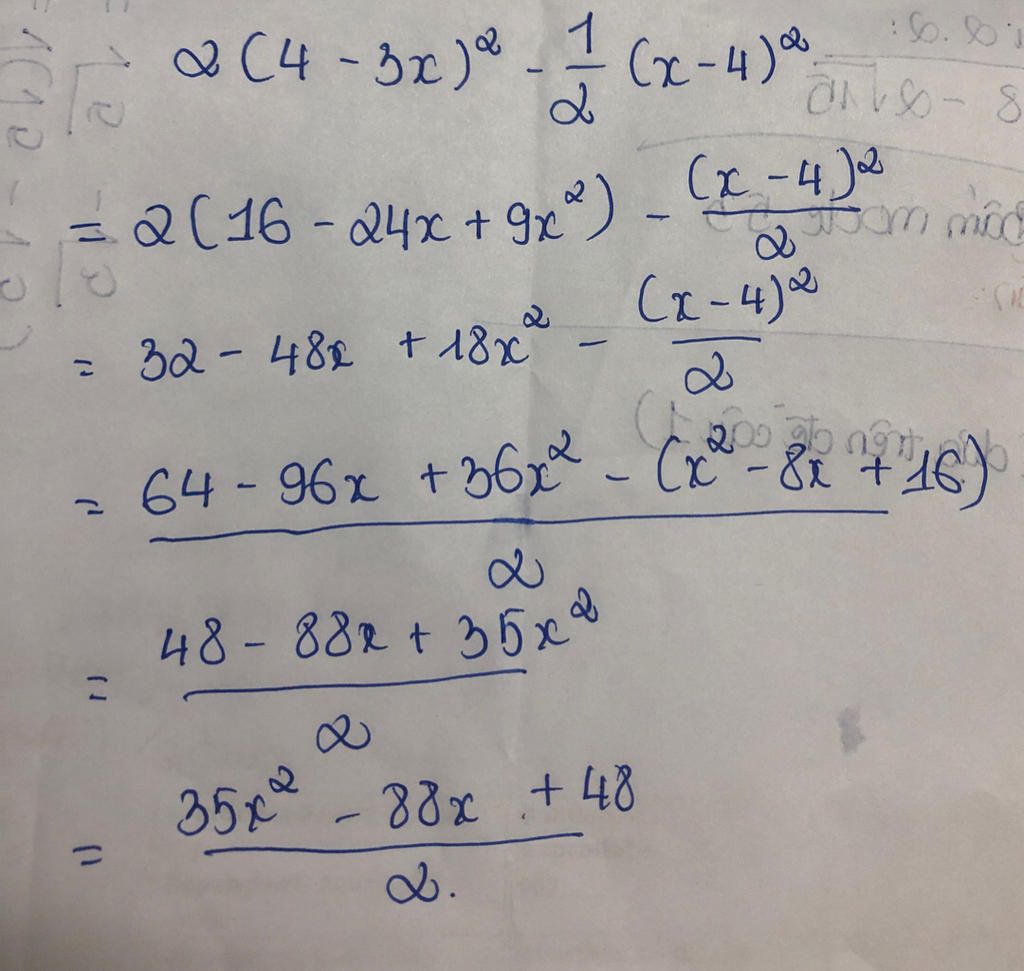 2(4 - 3x)² - 1/2 (x - 4)²
= 2(16 - 24x + 9x²) - (x - 4)²/2
= 32 - 48x + 18x² - (x - 4)²/2
= 64 - 96x + 36x² - (x² - 8x + 16)/2
= 48 - 88x + 35x²/2
= 35x² - 88x + 48/2.